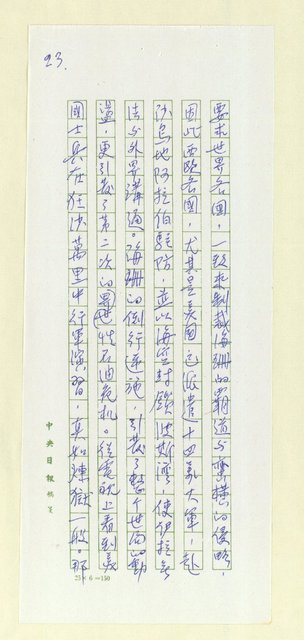 23.
要求世界各國，一致來制裁海珊的霸道与蠻橫的侵略，
因此西歐各國，尤其是美國已派遣十四萬大軍，赴
沙烏地阿拉伯駐防，並以海空封鎖波斯灣，使伊拉克無
法与外界溝通。海珊的倒行逆施，引發了整个世局的動
盪，更引發了第二次的世界性石油危机。從電視上看到美
國士兵在狂沙萬里中行軍演習，真如煉獄一般。那
中央日報稿箋
25×6=150